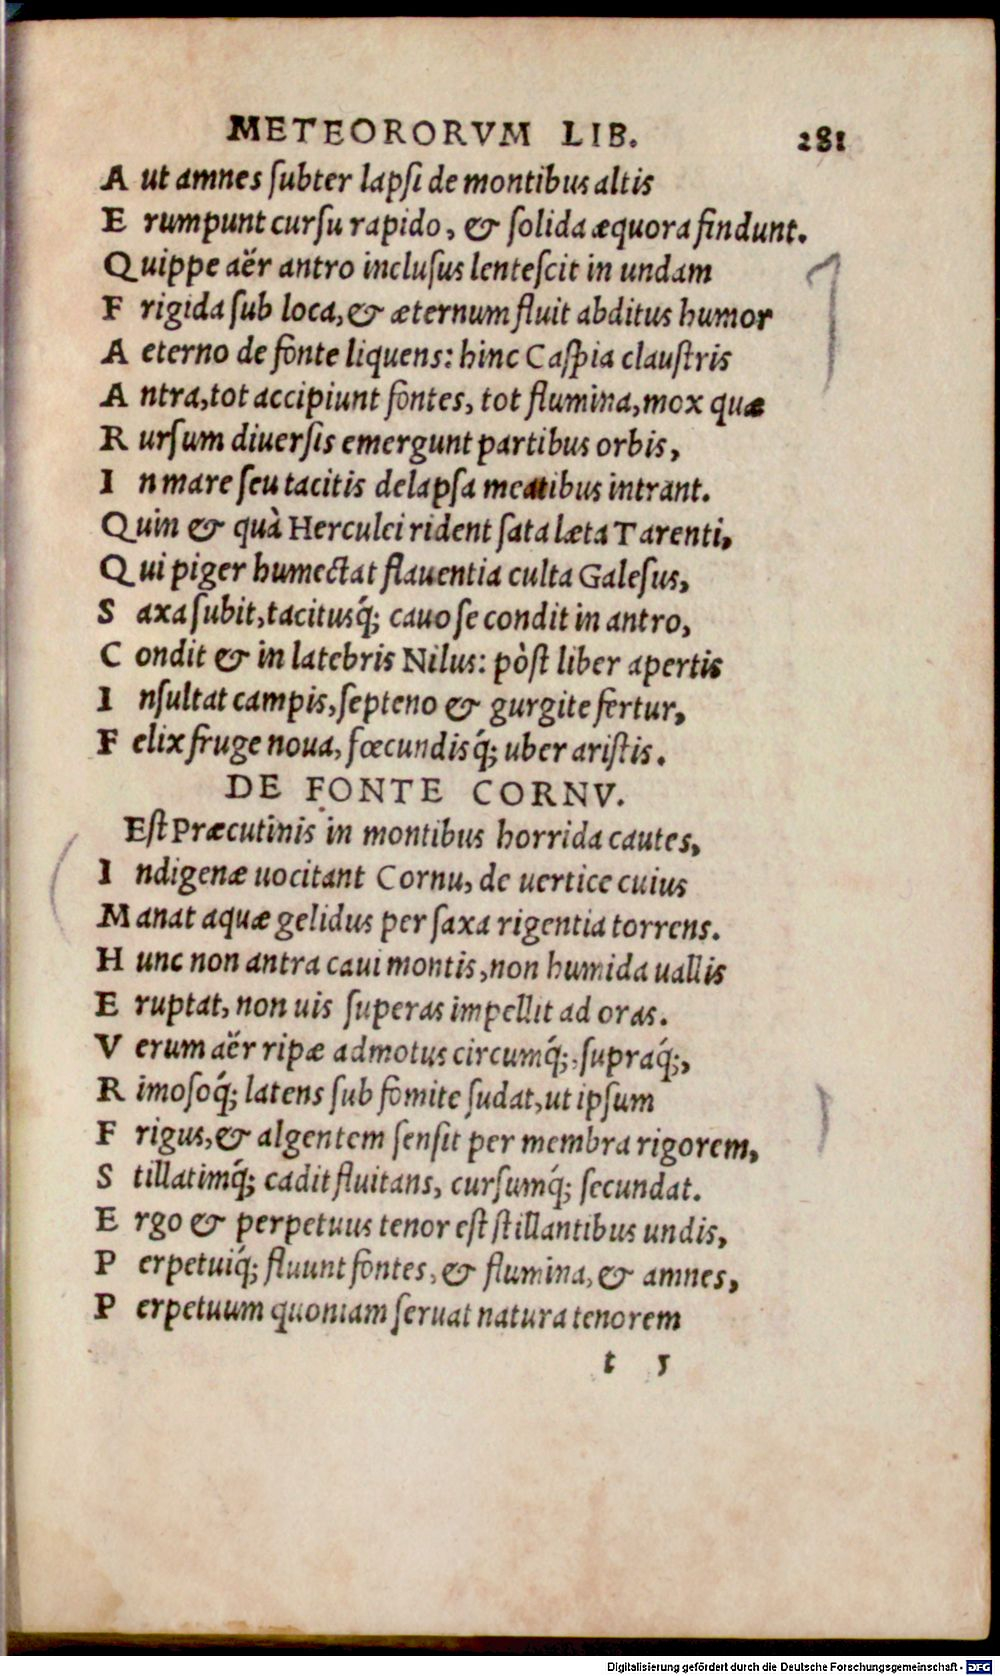 METEORORVM LIB. 281
A ut amnes ſubter lapſi de montibus altis
E rumpunt curſu rapido, & ſolida æquora findunt.
Q uippe aër antro incluſus lenteſcit in undam
F rigida ſub loca, & æternum fluit abditus humor
A eterno de fonte liquens: hinc Caſpia clauſtris
A ntra, tot accipiunt fontes, tot flumina, mox quæ
R urſum diuerſis emergunt partibus orbis,
I n mare ſeu tacitis delapſa meatibus intrant.
Q uin & quà Herculei rident ſata læta Tarenti,
Q ui piger humectat flauentia culta Galeſus,
S axa ſubit, tacitusq́; cauo ſe condit in antro,
C ondit & in latebris Nilus: pòſt liber apertis
I nſultat campis, ſepteno & gurgite fertur,
F elix fruge noua, fœcundisq́; uber ariſtis.
DE FONTE CORNV.
Eſt Præcutinis in montibus horrida cautes,
I ndigenæ uocitant Cornu, de uertice cuius
M anat aquæ gelidus per ſaxa rigentia torrens.
H unc non antra caui montis, non humida uallis
E ruptat, non uis ſuperas impellit ad oras.
V erum aër ripæ admotus circumq́;, ſupraq́;,
R imoſoq́; latens ſub fomite ſudat, ut ipſum
F rigus, & algentem ſenſit per membra rigorem,
S tillatimq́; cadit fluitans, curſumq́; ſecundat.
E rgo & perpetuus tenor eſt ſtillantibus undis,
P erpetuiq́; fluunt fontes, & flumina, & amnes,
P erpetuum quoniam ſeruat natura tenorem
t 5
Digitalisierung gefördert durch die Deutsche Forschungsgemeinschaft - DFG